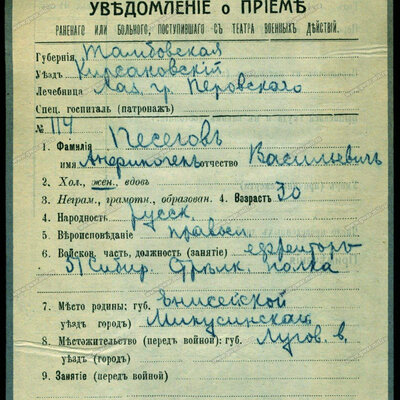 УВѢДОМЛЕНІЕ о ПРІЕМѢ
РАНЕНАГО ИЛИ БОЛЬНОГО, ПОСТУПИВШАГО СЪ ТЕАТРА ВОЕННЫХЪ ДѢЙСТВІЙ.
Губернія Тамбовская
Уѣздъ Кирсаковскій
Лечебница Лаз. гр. Перовскаго
Спец. госпиталь (патронаж)
№ 114
1. Фамилія Песеговъ
имя отчество Васильевичъ
2. Хол., жен., вдовъ
3. Неграм., грамотн., образован. 4. Возрастъ 30
4. Народность русск.
5. Вѣроисповѣданіе правосл.
6. Войсков. часть, должность (занятіе) ефрейторъ
51 Сибир. Стрѣлк. полка
7. Мѣсто родины: губ. Енисейской
уѣздъ (городъ) Минусинскаго
8. Мѣстожительство (передъ войной): губ. Лугов. в.
уѣздъ (городъ)
9. Занятіе (передъ войной)